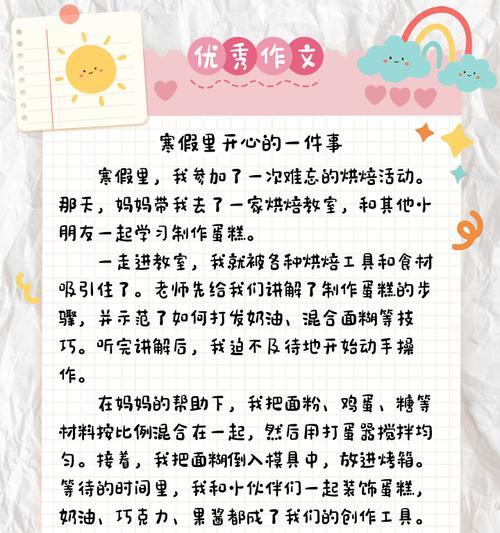 优秀作文
寒假里开心的一件事
寒假里，我参加了一次难忘的烘焙活动。
那天，妈妈带我去了一家烘焙教室，和其他小
朋友一起学习制作蛋糕。
一走进教室，我就被各种烘焙工具和食材
吸引住了。老师先给我们讲解了制作蛋糕的步
骤，并示范了如何打发奶油、混合面糊等技
巧。听完讲解后，我迫不及待地开始动手操
作。
在妈妈的帮助下，我把面粉、鸡蛋、糖等
材料按比例混合在一起，然后用打蛋器搅拌均
匀。接着，我把面糊倒入模具中，放进烤箱。
等待的时间里，我和小伙伴们一起装饰蛋糕，
奶油、巧克力、果酱都成了我们的创作工具。